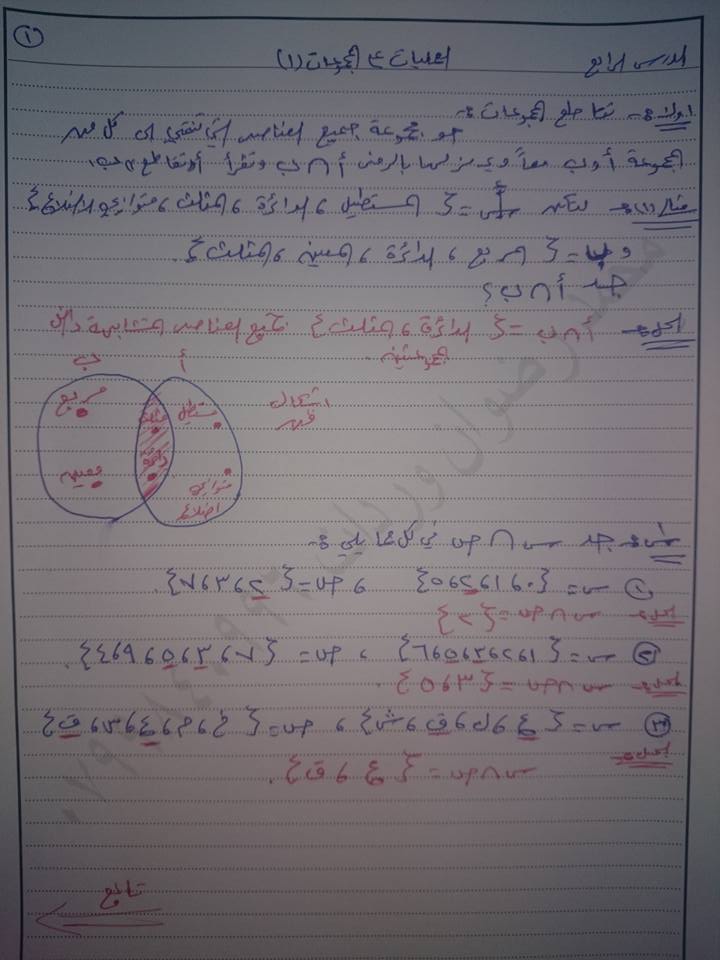 ١
الدرس الرابع    العمليات على المجموعات (١)
اولاً :- تقاطع المجموعات :-
هو مجموعة جميع العناصر التي تنتمي الى كل من
المجموعة أ و ب معاً ويرمز لها بالرمز أ ∩ ب وتقرأ أ تقاطع ب.
مثال (١) :- لتكن أ = { المستطيل ، الدائرة ، المثلث ، متوازي الاضلاع }
و ب = { المربع ، الدائرة ، المعين ، المثلث }.
جد أ ∩ ب ؟
الحل :- أ ∩ ب = { الدائرة ، المثلث } جميع العناصر المتشابهة داخل
المجموعتين .
أ    ب
اشكال
فن
مربع    مثلث    مستطيل
معين    دائرة    متوازي
اضلاع
جد س ∩ ص في كل مما يلي :-
١) س = {٠ ، ١ ، ٢ ، ٥} ، ص = {٢ ، ٣ ، ٧}.
الحل :- س ∩ ص = {٢}
٢) س = {١ ، ٢ ، ٣ ، ٥ ، ٦} ، ص = {٧ ، ٣ ، ٥ ، ٩ ، ٤}.
الحل :- س ∩ ص = {٣ ، ٥}.
٣) س = {ع ، ل ، ق ، ش} ، ص = { م ، ع ، ق}
الحل :-
س ∩ ص = {ع ، ق}.
تابع
محمد رضوان وردات